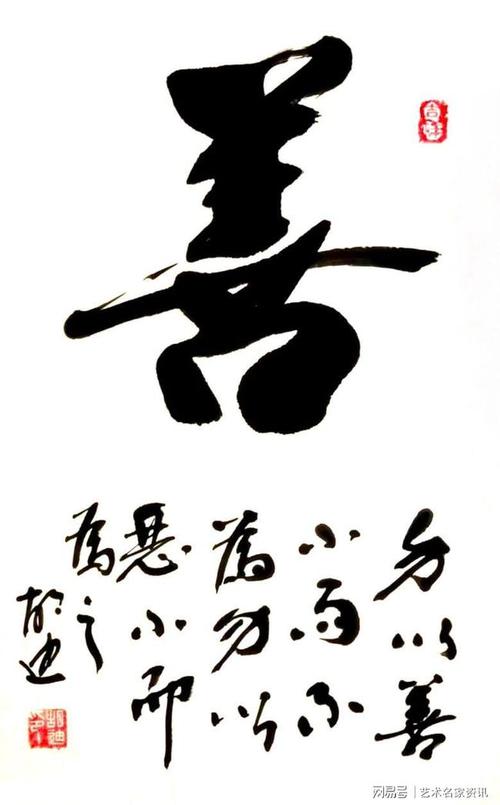 善
勿以善
小而不
為勿以
惡小而
為之
胡迪
胡迪
网易号 | 艺术名家资讯